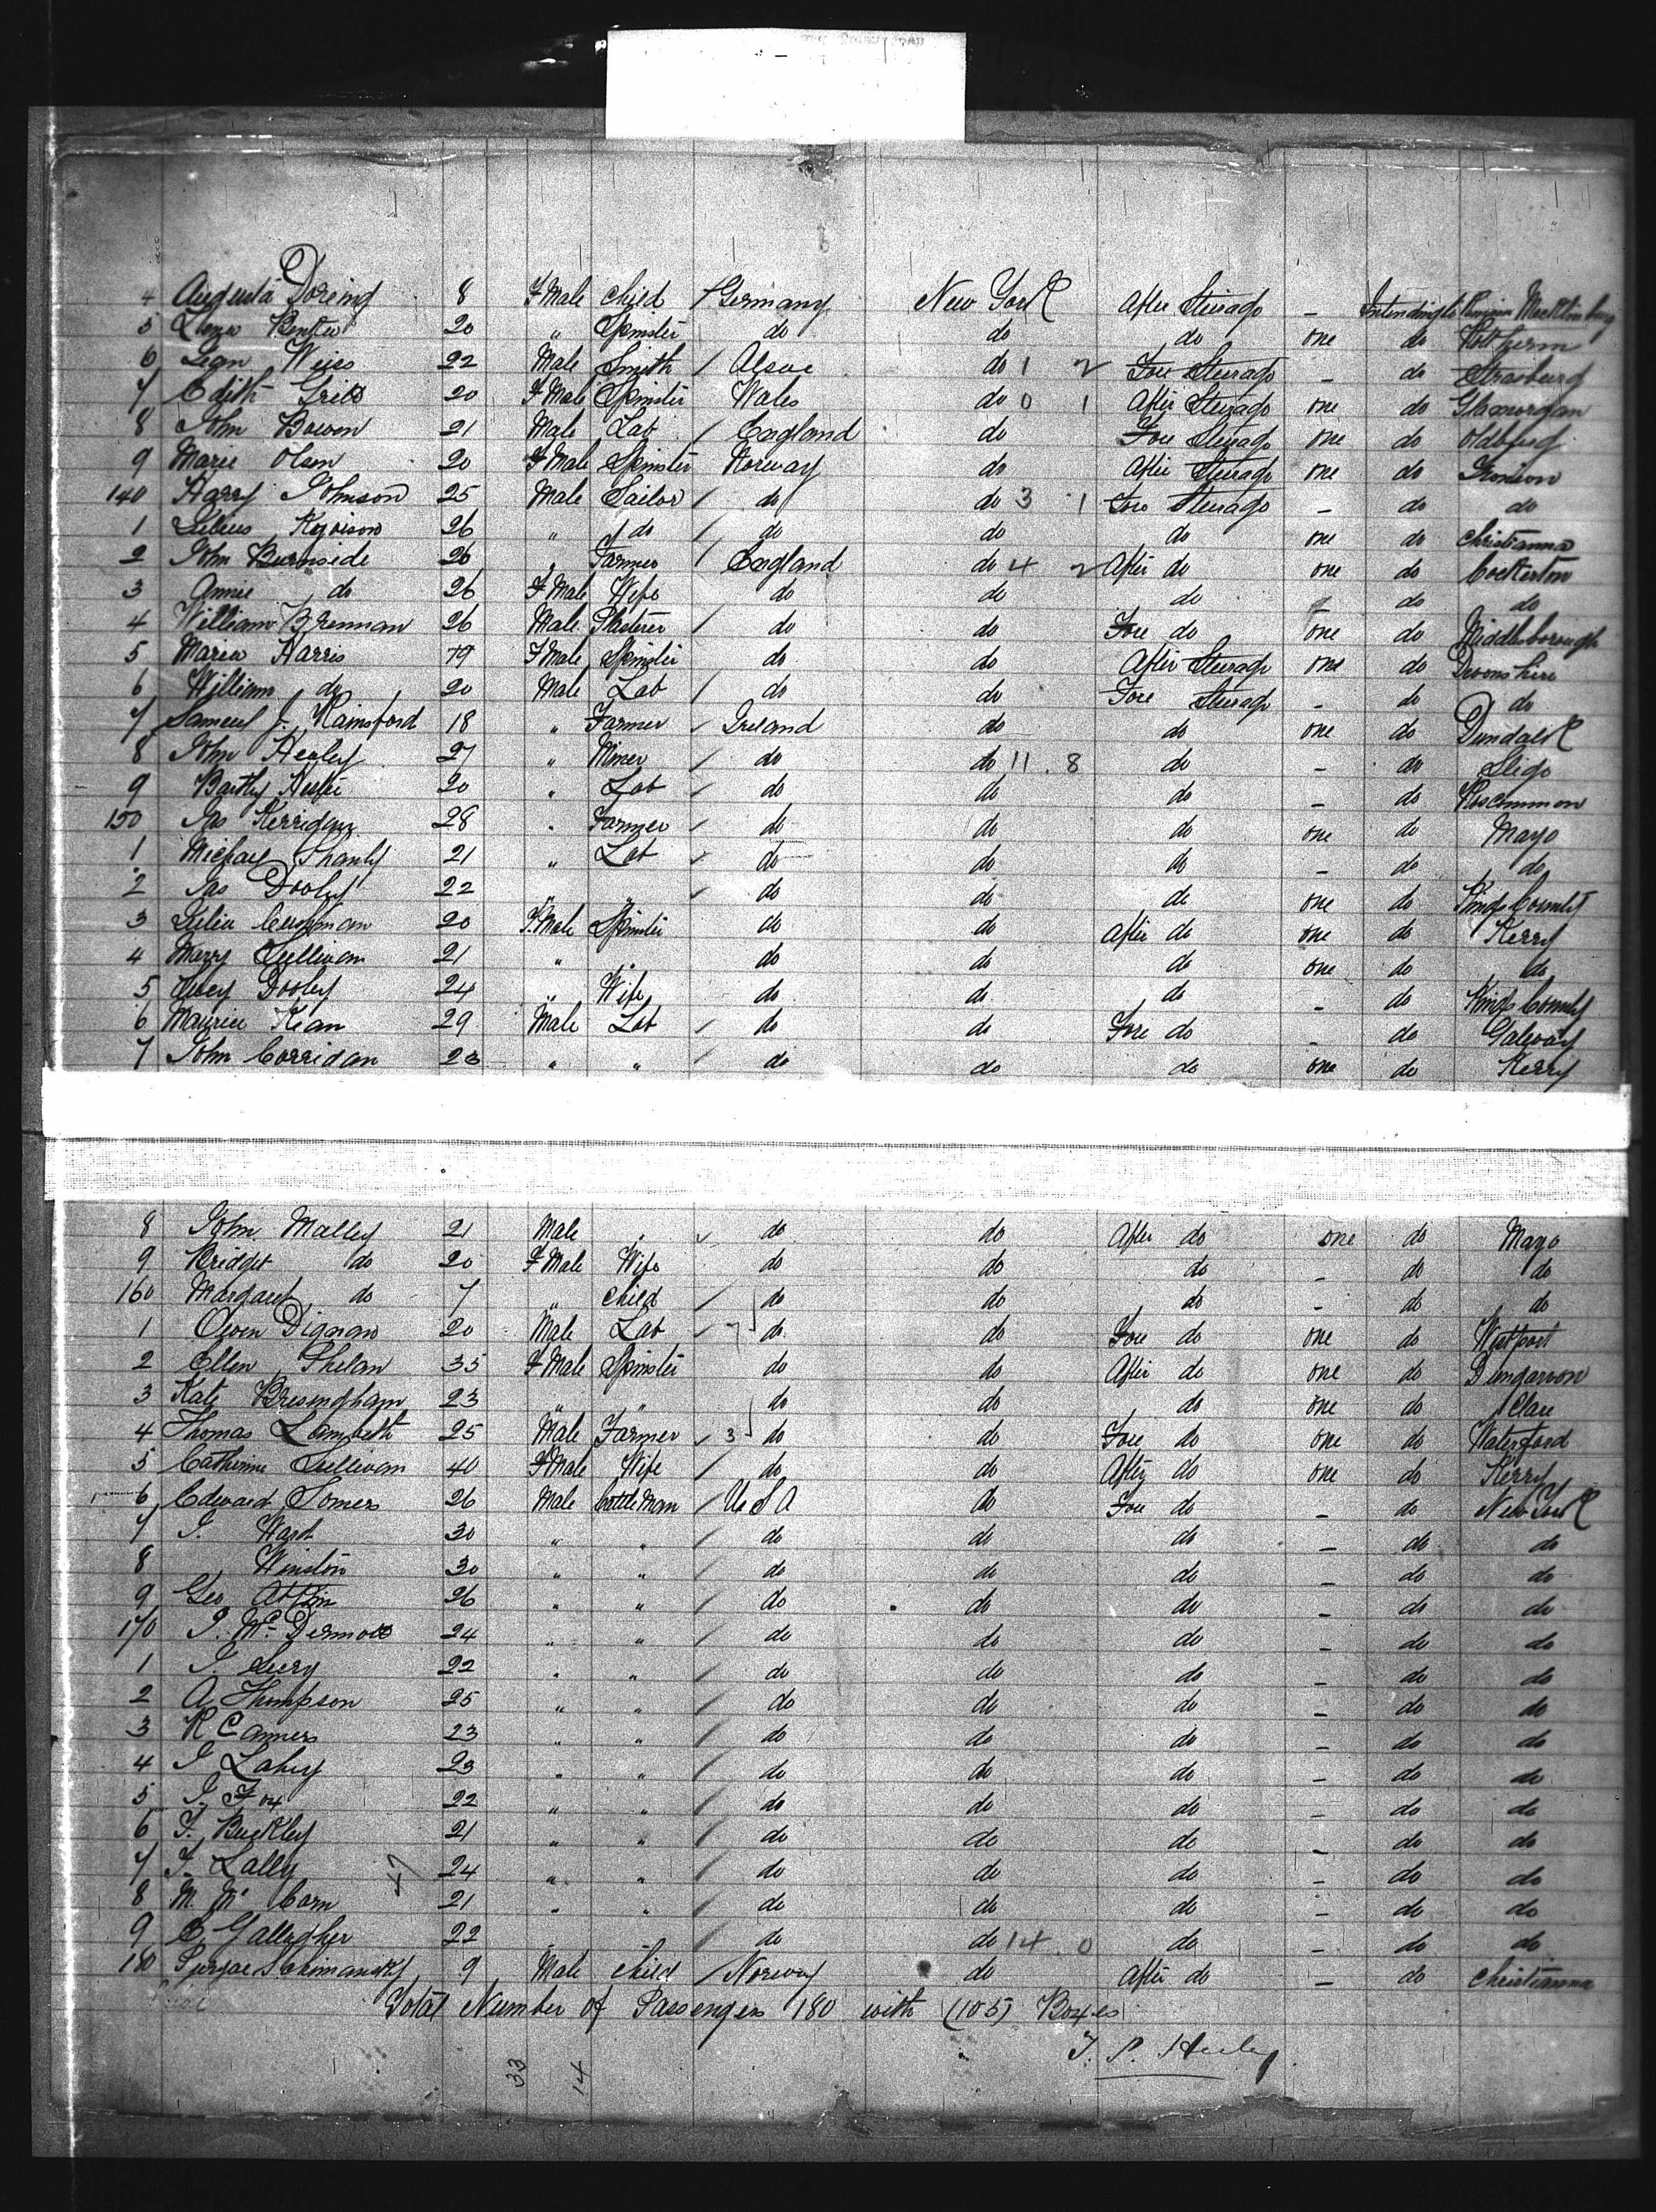 4 Augusta Doreing 8 F Male Child Germany New York After Steirage – Intending to Remain
5 20 " Spinster do do do one do
6 Leon Weiss 22 Male Smith Alsac do 1 2 Fore Steurage – do Strasburg
7 Edith 20 F Male Spinster Wales do 0 1 After Steurage one do Glamorgan
8 John Bowen 21 Male Lab England do Fore Steurage one do Oldburg
9 Marie Olsen 20 F Male Spinster Norway do After Steurage one do
140 Harry Johnson 25 Male Sailor do do 3 1 Fore Steurage – do do
1 Julius 26 " do do do do one do Christianna
2 John Burnside 26 " Farmer England do 4 2 After do one do
3 Annie do 26 F Male Wife do do do – do do
4 William Brennan 26 Male Plasterer do do Fore do one do Middlesborough
5 Maria Harris 19 F Male Spinster do do After Steurage one do Devonshire
6 William do 20 Male Lab do do Fore Steurage – do do
7 Samuel J. Rainsford 18 " Farmer Ireland do do one do Dundalk
8 John Healey 27 " Miner do do 11 . 8 do – do Sligo
9 Bartly 20 " Lab do do do – do Roscommon
150 Jas Kerrigan 28 " Farmer do do do one do Mayo
1 Michael Shanly 21 " Lab do do do – do do
2 Jas Dooley 22 " " do do do one do Kings County
3 Julia Cushman 20 F. Male Spinster do do After do one do Kerry
4 Mary Sullivan 21 " " do do do one do do
5 Dooley 24 " Wife do do do – do Kings County
6 Maurice Kean 29 Male Lab do do Fore do – do Galway
7 John Corridan 23 " " do do do one do Kerry
8 John Malley 21 Male " do do After do one do Mayo
9 Bridget do 20 F Male Wife do do do – do do
160 Margaret do 7 " Child do do do – do do
1 Owen Dignan 20 Male Lab 7 do do Fore do one do Westport
2 Ellen Phelan 35 F Male Spinster do do After do one do Dungarvon
3 Kate Bresingham 23 " " do do do one do Clare
4 Thomas Lambeth 25 Male Farmer 3 do do Fore do one do Waterford
5 Catherine Sullivan 40 F Male Wife do do After do one do Kerry
6 Edward Somers 26 Male Cattle Man U S A do Fore do – do New York
7 J. Ward 30 " " do do do – do do
8 Winston 30 " " do do do – do do
9 Geo 26 " " do do do – do do
170 P. McDermott 24 " " do do do – do do
1 J. 22 " " do do do – do do
2 A Thompson 25 " " do do do – do do
3 R Conners 23 " " do do do – do do
4 J Lahey 23 " " do do do – do do
5 J. Fox 22 " " do do do – do do
6 T. Buckley 21 " " do do do – do do
7 T. Lally 47 24 " " do do do – do do
8 M. Mc 21 " " do do do – do do
9 C. Gallagher 22 " " do do 14 . 0 do – do do
180 9 Male Child Norway do After do – do Christianna
Total Number of Passengers 180 with (105) Boxes
33 14